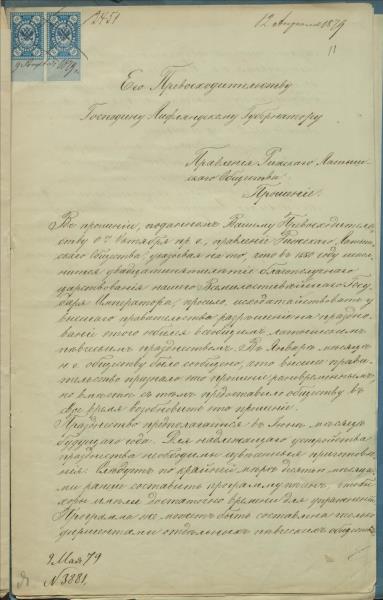 2451
12 Апреля 1879
11
Его Превосходительству
Господину Лифляндскому Губернатору
Правления Рижского Латыш-
скаго Общества
Прошение.
Въ прошеніи, поданномъ Вашему Превосходитель-
ству 6го Октября пр. г., правленіе Рижскаго Латыш-
скаго Общества, указывая на то, что въ 1880 году испол-
нится двадцатипятилѣтіе благополучнаго
царствованія нашего Всемилостивѣйшаго Госу-
даря Императора, просило исходатайствовать у
высшаго правительства разрѣшеніе на праздно-
ваніе этого юбилея всеобщимъ латышскимъ
пѣвческимъ празднествомъ. Въ Январѣ мѣсяцѣ
н. г. обществу было сообщено, что высшее прави-
тельство признало это прошеніе разновременнымъ,
но вмѣстѣ съ тѣмъ предоставило обществу въ
свое время возобновить это прошеніе.
Празднество предполагается въ Іюнѣ мѣсяцѣ
будущаго года. Для надлежащаго устройства
празднества необходимы
по крайней мѣрѣ девять мѣсяца-
ми ранѣе составить программу, чтобы
хоры имѣли достаточно времени для упражненій.
Программа же можетъ быть составлена только
дирижентами отдѣльныхъ пѣвческихъ обществъ
9 Мая 79
N 3881.